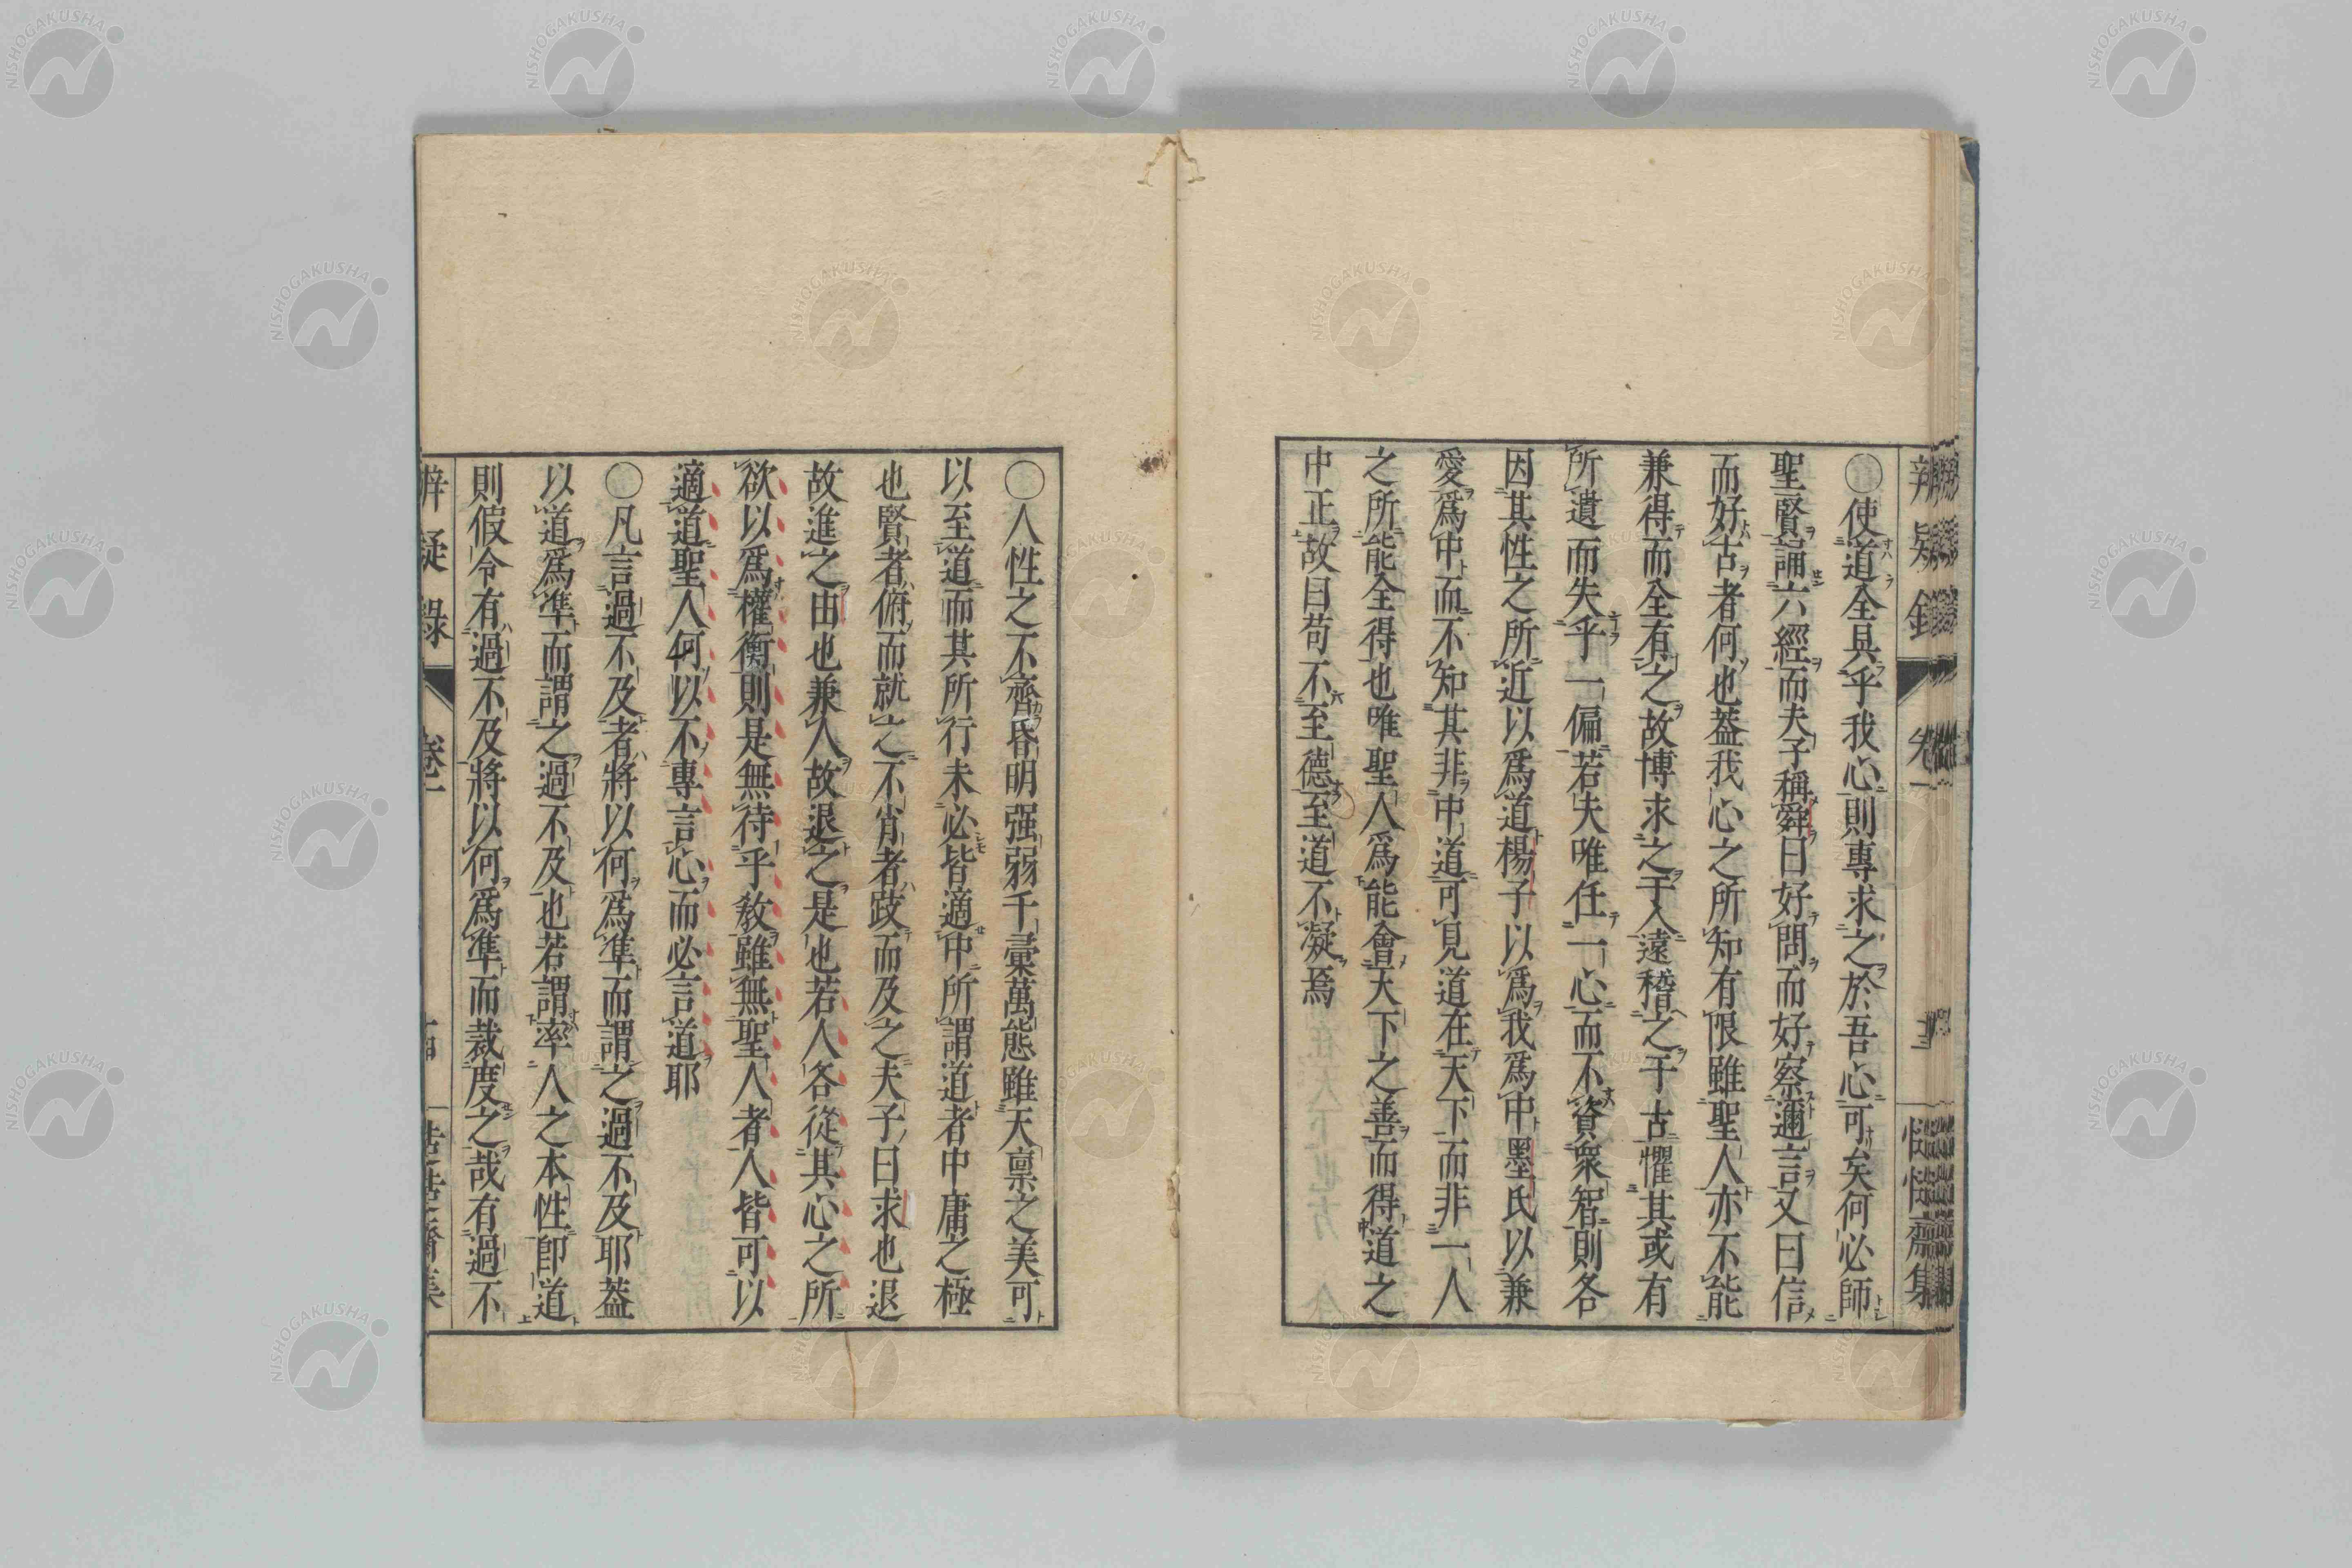 〇使道全具乎我心則專求之於吾心可矣何必師
聖賢誦六經而夫子稱舜曰好問而好察邇言又曰信
而好古者何也蓋我心之所知有限雖聖人亦不能
兼得而全有之故博求之于人遠稽之于古懼其或有
所遺而失乎一偏若夫唯任一心而不資衆智則各
因其性之所近以爲道楊子以爲我爲中墨氏以兼
愛爲中而不知其非中道可見道在天下而非一人
之所能全得也唯聖人爲能會天下之善而得道之
中正故曰苟不至德至道不凝焉
〇人性之不齊昏明强弱千彙萬態雖天禀之美可
以至道而其所行未必皆適中所謂道者中庸之極
也賢者俯而就之不肖者跂而及之夫子曰求也退
故進之由也兼人故退之是也若人各從其心之所
欲以爲權衡則是無待乎教雖無聖人者人皆可以
適道聖人何以不專言心而必言道耶
〇凡言過不及者將以何爲準而謂之過不及耶蓋
以道爲準而謂之過不及也若謂率人之本性卽道
則假令有過不及將以何爲準而裁度之哉有過不
辨疑録
卷一
NISHOGAKUSHA